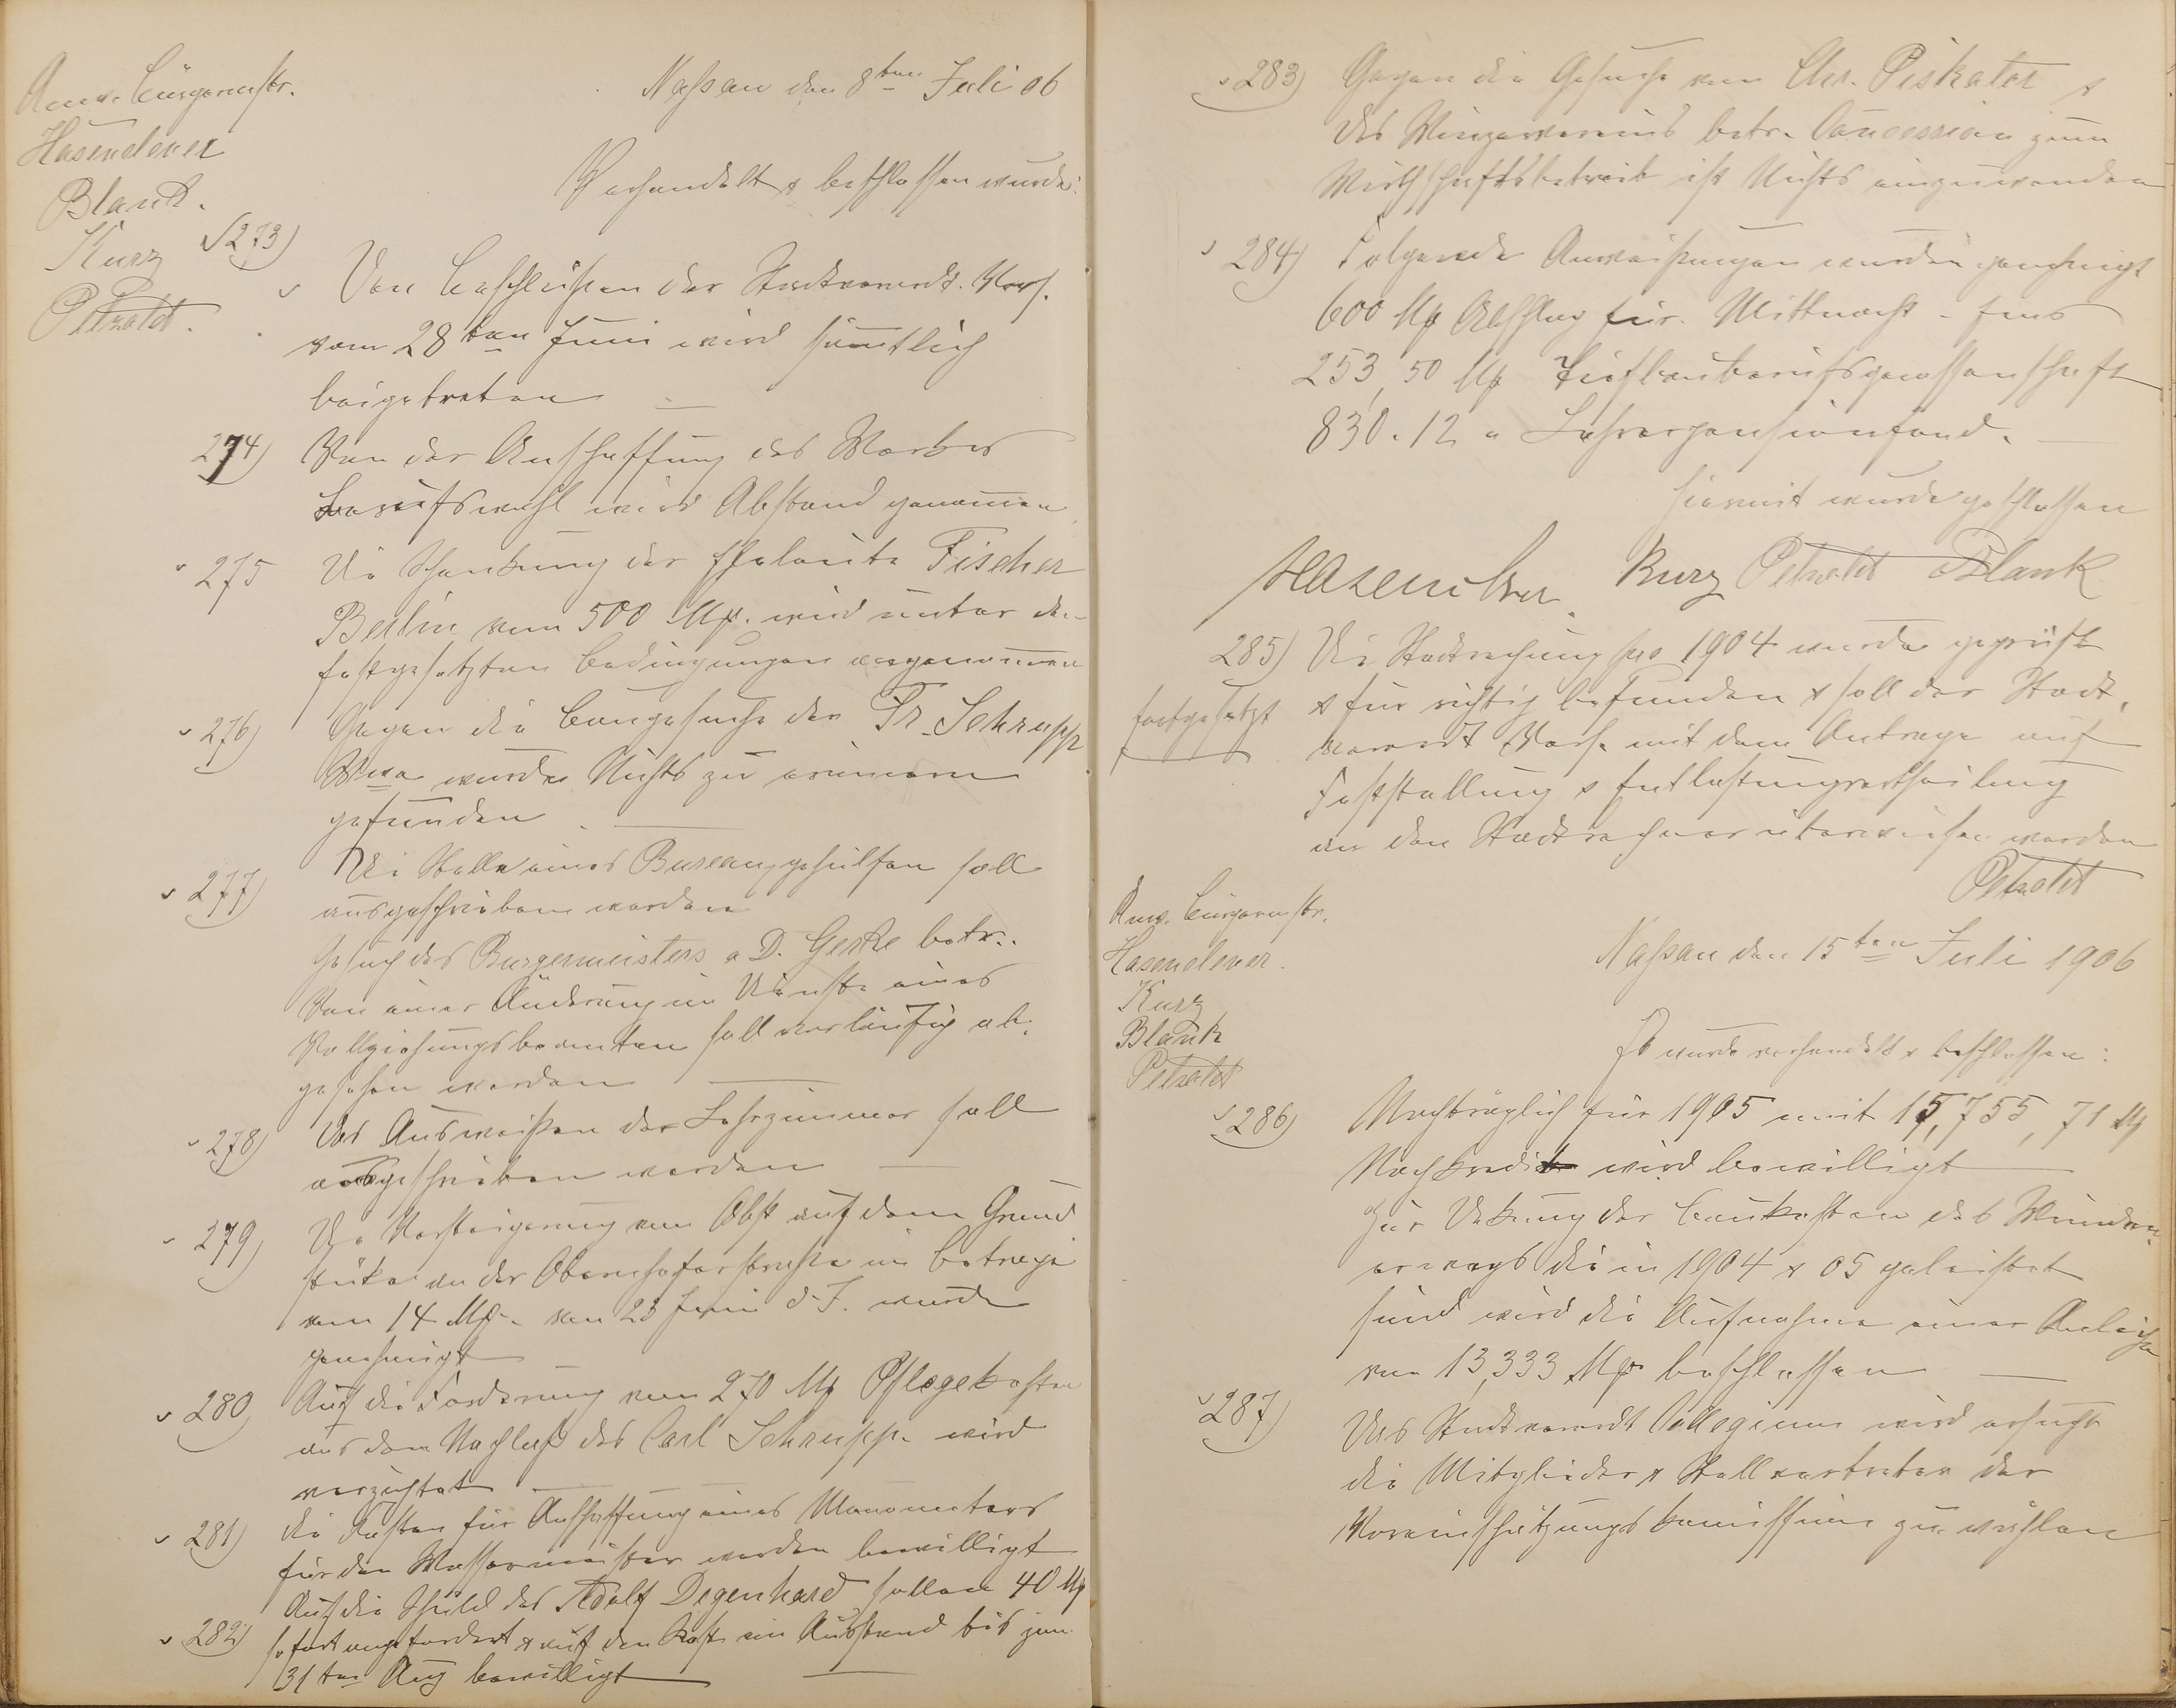 Anw. Bürgermstr.
Hasenclever
Blank.
Kurz
Petzoldt.
Naßau den 8ten Juli 06
Verhandelt & beschlossen wurde:
273)
Den Beschlüßen der Stadtverordt. Vers.
vom 28ten Juni wird sämtlich
beigetreten
274) Von der Anschaffung des Werkes
Berufswahl wird Abstand genommen
275 Die Schenkung der Eheleute Fischer
Berlin von 500 Mk. wird unter den
festgesetzten Bedingungen angenommen
276) Gegen die Baugesuche der Fr. Schrupp
Wwe wurde Nichts zu erinnern
gefunden
277) Die Stelle eines Bureaugehülfen soll
ausgeschrieben werden
Gesuch des Burgermeisters a D. Gerke betr.
Von einer Änderung im Dienste eines
Vollziehungsbeamten soll vorläufig ab-
gesehen werden
278) Das Ausweißen der Lehrzimmer soll
ausgeschrieben werden
279) Die Versteigerung von Obst auf dem Grund
stücke an der Obernhoferstraße im Betrage
von 14 Mk. vom 23 Juni d. J. wurde
genehmigt
280) Auf die Forderung von 270 Mk Pflegekosten
aus dem Nachlaß des Carl Schrupp. wird
verzichtet
281) die Kosten für Anschaffung eines Manometers
für den Wassermeister werden bewilligt
282) Auf die Schuld des Adolf Degenhard sollen 40 Mk
sofort angefordert & auf den Rest ein Ausstand bis zum
31ten Aug bewilligt
283) Gegen die Gesuche von Chr. Piskator &
des Winzervereins betr. Concession zum
Wirthschaftsbetrieb ist Nichts einzuwenden
284) Folgende Anweisungen wurden genehmigt
600 Mk Abschlag für Mittwoch - Ems
253,50 Mk Tiefbauberufsgenossenschaft
830.12 " Lehrerpensionsfond.
hiermit wurde geschlossen
Hasenclever Kurz Petzoldt Blank
285) Die Stadtrechnung pro 1904 wurde geprüft
fortgesetzt & für richtig befunden & soll der Stadt,
verordt Vers. mit dem Antrage auf
Feststellung & Entlastungsertheilung
an den Stadtrechner überwiesen werden
Petzoldt
Anw. Bürgermstr.
Hasenclever.
Kurz
Blank
Petzoldt
Naßau den 15ten Juli 1906
Es wurde verhandelt & beschlossen:
286) Nachträglich für 1905 mit 15,755,71 M
Nachkredit wird bewilligt
Zur Deckung der Baukosten des
die in 1904 & 05 geleistet
sind wird die Aufnahme einer Anleihe
von 13,333 Mk beschlossen
287) Das Stadtverordt Collegium wird ersucht
die Mitglieder & Stellvertreter der
Voreinschätzungskommission zu wählen